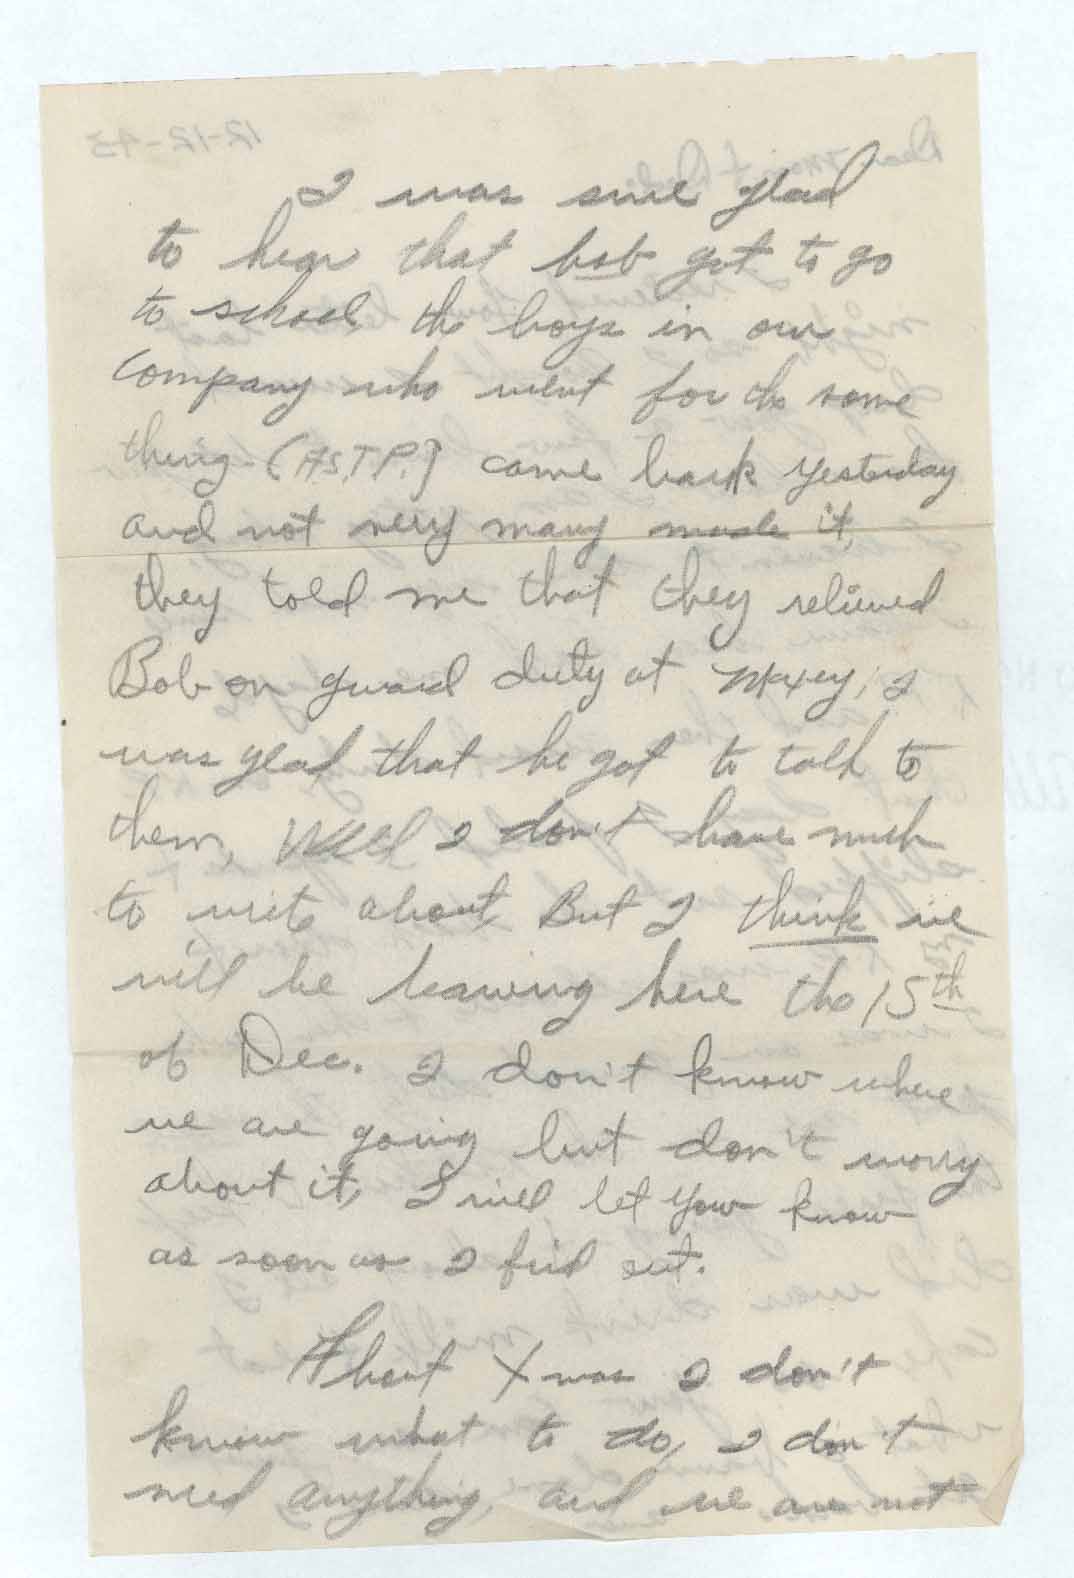 I was sure glad
to hear that bob got to go
to school, the boys in our
Company who went for the same
thing- (A.S.T.P.) came back yesterday
and not very many made it,
they told me that they relieved
Bob on guard duty at Maxey, I
was glad that he got to talk to
them, Well I don't have much
to write about, But I think we
will be leaving here the 15th
of Dec. I don't know where
we are going but don't worry
about it, I will let you know
as soon as I find out.
About Xmas I don't
know what to do, I don't
need anything, and we are not